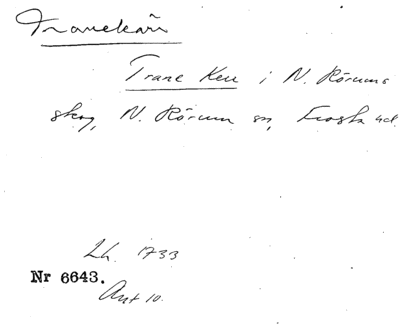 Tranekärr
Trane Kerr i N. Rörums
skog, N. Rörum sn, Frosta hd.
Lh. 1733
Nr 6643.
Avt 10.